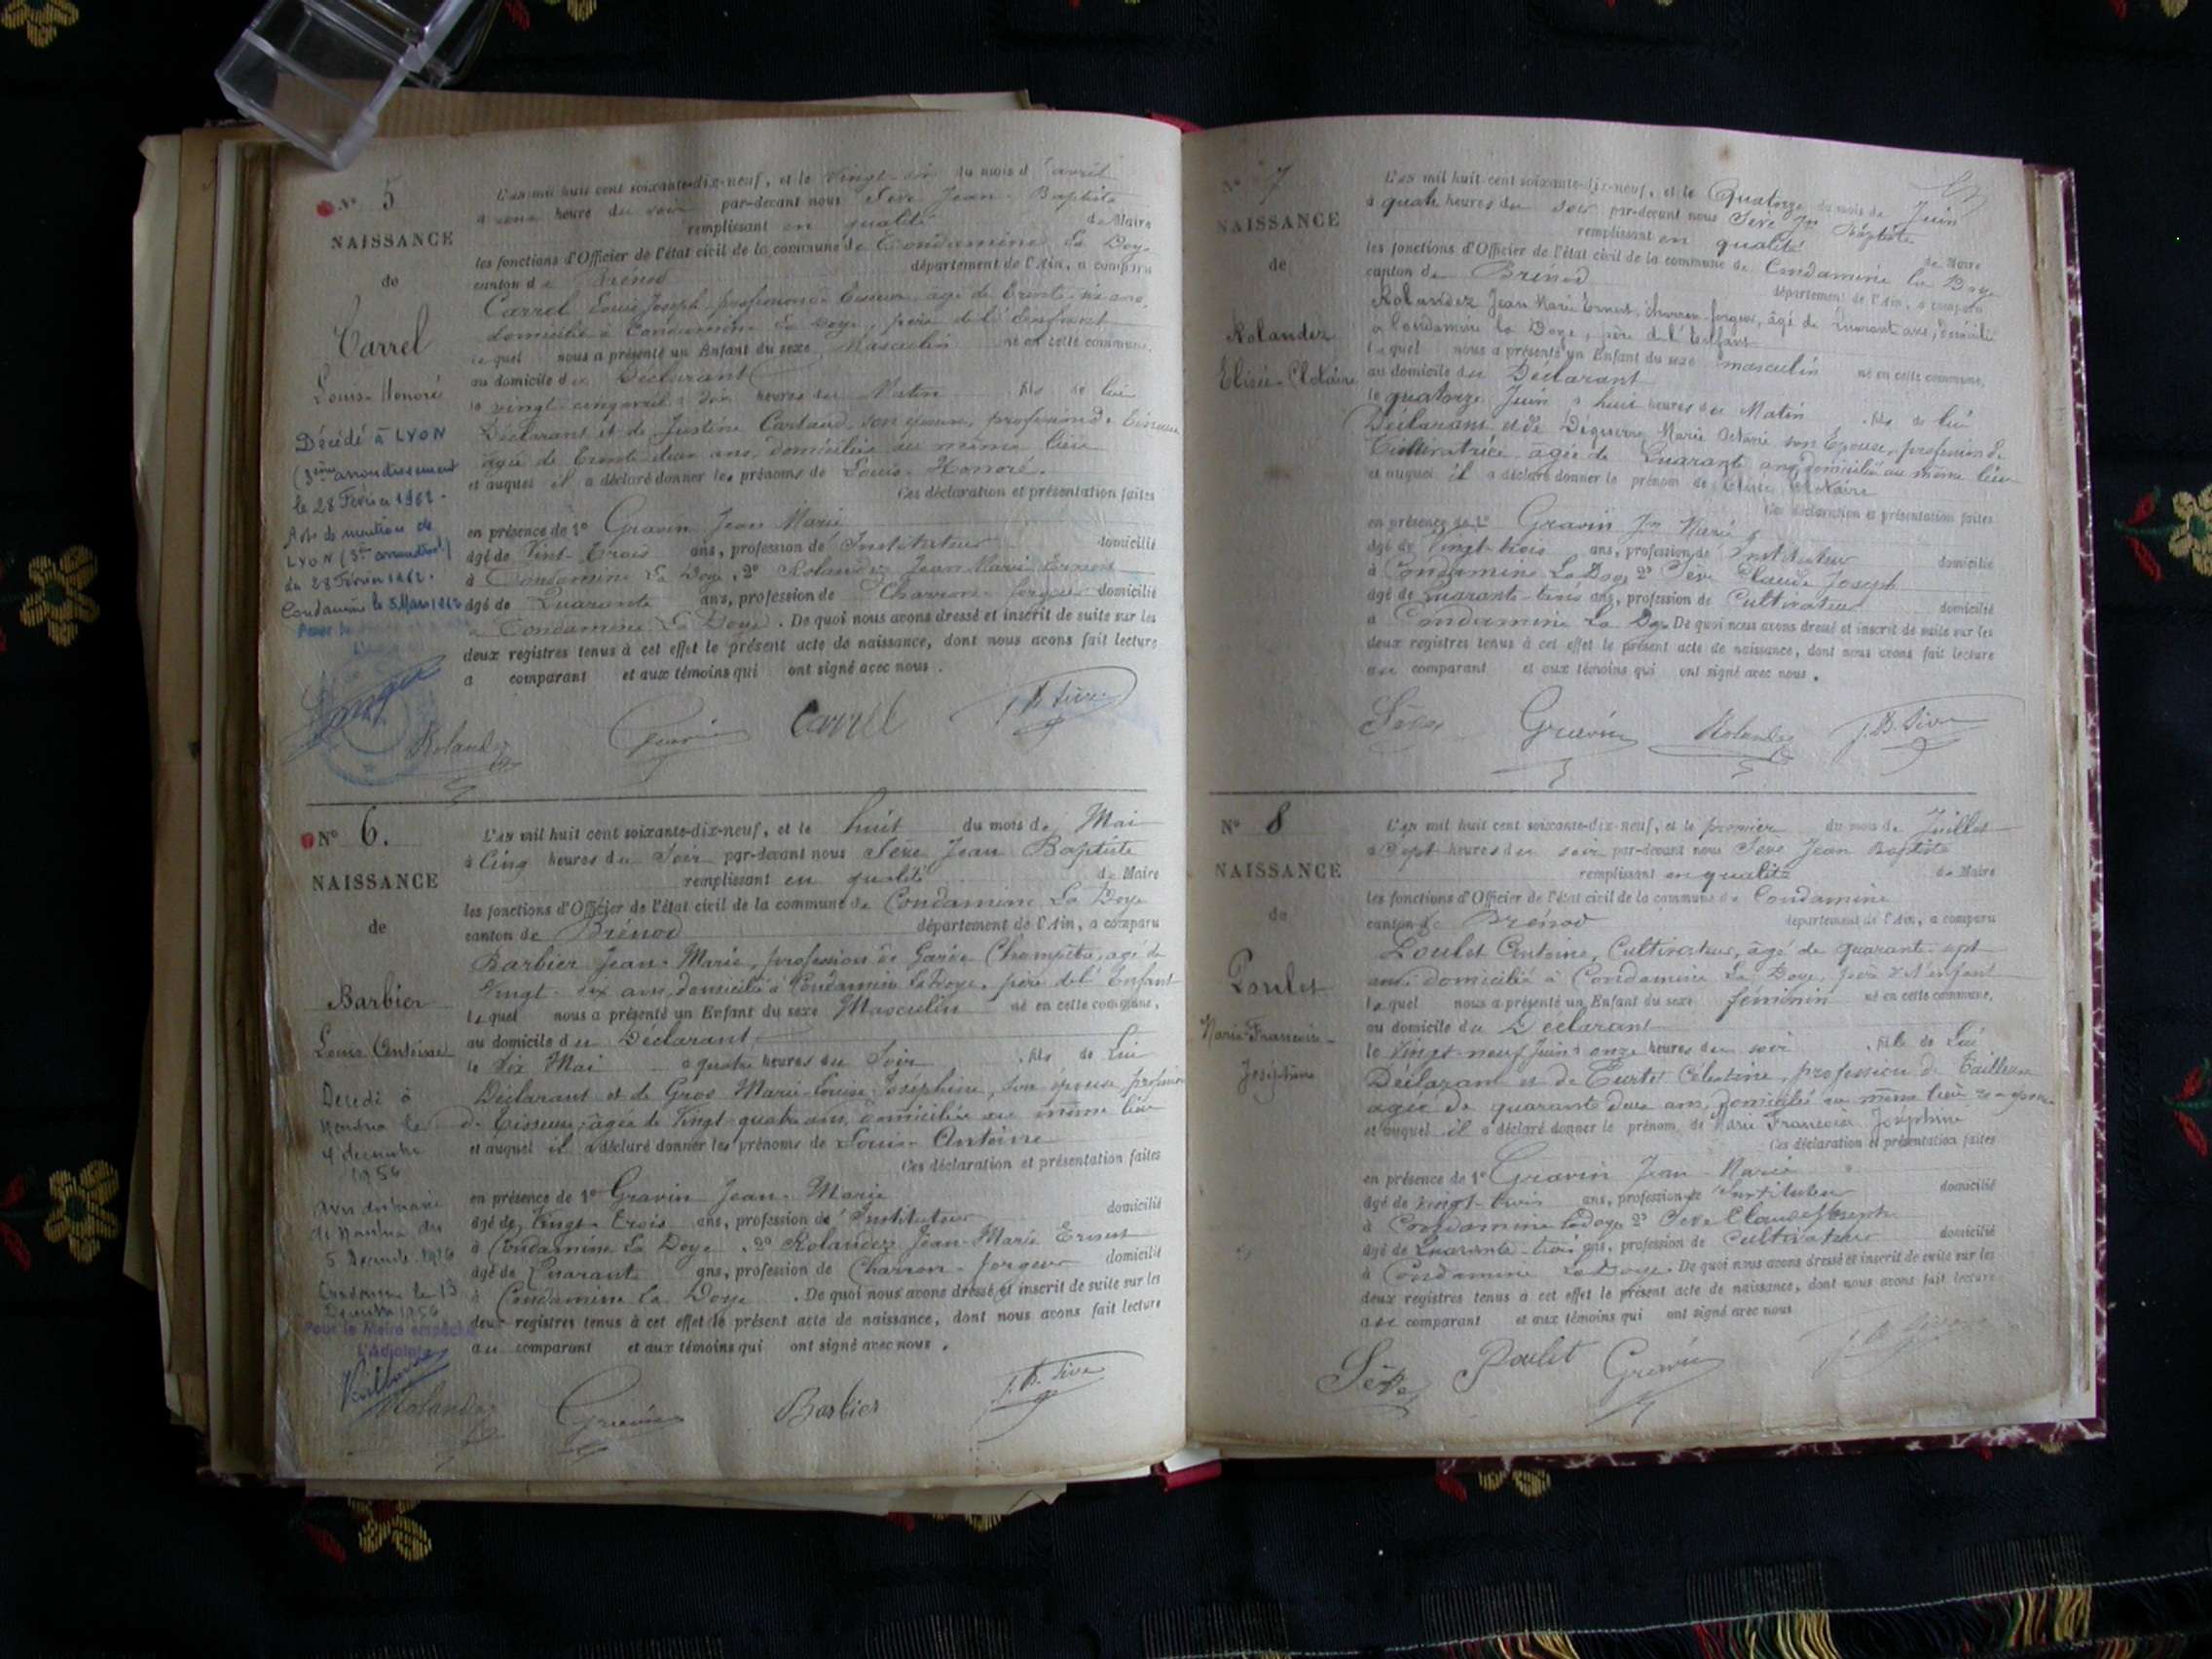 N° 5
NAISSANCE
de
Carrel
Louis-Honoré
Décédé à LYON
(3ème arrondissement
le 28 Février 1962.
Avis de mention de
LYON (3me arrondist)
du 28 Février 1962.
Condamine le 5 Mars 1962
L'an mil huit cent soixante-dix-neuf, et le Vingt-six du mois d'avril
à une heure du soir par-devant nous Sève Jean-Baptiste
remplissant en qualité de Maire
les fonctions d'Officier de l'état civil de la commune de Condamine La Doye
canton de Brénod département de l'Ain, a comparu
Carrel Louis Joseph, profession de Tisseur, âgé de Trente-six ans,
domicilié à Condamine La Doye, père de l'Enfant
lequel nous a présenté un Enfant du sexe Masculin né en cette commune,
au domicile du Déclarant
le vingt cinq avril à dix heures du Matin fils de lui
Déclarant et de Justine Cartaud, son épouse, profession de Tisseuse
âgée de trente deux ans, domiciliée au même lieu
et auquel il a déclaré donner les prénoms de Louis-Honoré.
Ces déclaration et présentation faites
en présence de 1° Gravin Jean Marie
âgé de Vingt-Trois ans, profession d'Instituteur domicilié
à Condamine La Doye, 2° Rolandez Jean Marie Ernest
âgé de Quarante ans, profession de Charron-forgeur domicilié
à Condamine La Doye. De quoi nous avons dressé et inscrit de suite sur les
deux registres tenus à cet effet le présent acte de naissance, dont nous avons fait lecture
a comparant et aux témoins qui ont signé avec nous.
Rolandez Gravin Carrel J. B. Sève
N° 6.
NAISSANCE
de
Barbier
Louis Antoine
Décédé à
Nantua le
4 décembre
1956
Avis du maire
de Nantua du
5 Décembre 1956
Condamine le 13
Décembre 1956
Pour le Maire empêché
L'Adjoint
L'an mil huit cent soixante-dix-neuf, et le huit du mois de Mai
à Cinq heures du Soir par-devant nous Sève Jean Baptiste
remplissant en qualité de Maire
les fonctions d'Officier de l'état civil de la commune de Condamine La Doye
canton de Brénod département de l'Ain, a comparu
Barbier Jean-Marie, profession de Garde Champêtre, âgé de
Vingt-six ans, domicilié à Condamine La Doye, père de l'Enfant
lequel nous a présenté un Enfant du sexe Masculin né en cette commune,
au domicile du Déclarant
le Six Mai à quatre heures du Soir fils de Lui
Déclarant et de Gros Marie-Louise-Joséphine, son épouse, profession
de Tisseuse, âgée de Vingt-quatre ans, domiciliée au même lieu
et auquel il a déclaré donner les prénoms de Louis-Antoine
Ces déclaration et présentation faites
en présence de 1° Gravin Jean-Marie
âgé de Vingt-Trois ans, profession d'Instituteur domicilié
à Condamine La Doye, 2° Rolandez Jean-Marie Ernest
âgé de Quarante ans, profession de Charron-forgeur domicilié
à Condamine La Doye. De quoi nous avons dressé et inscrit de suite sur les
deux registres tenus à cet effet le présent acte de naissance, dont nous avons fait lecture
au comparant et aux témoins qui ont signé avec nous.
Rolandez Gravin Barbier J. B. Sève
N° 7
NAISSANCE
de
Rolandez
Elisée-Clotaire
L'an mil huit cent soixante-dix-neuf, et le Quatorze du mois de Juin
à quatre heures du soir par-devant nous Sève Jn Baptiste
remplissant en qualité de Maire
les fonctions d'Officier de l'état civil de la commune de Condamine la Doye
canton de Brénod département de l'Ain, a comparu
Rolandez Jean Marie Ernest, charron-forgeur, âgé de Quarante ans, domicilié
à Condamine la Doye, père de l'Enfant
lequel nous a présenté un Enfant du sexe masculin né en cette commune,
au domicile du Déclarant
le quatorze Juin à huit heures du Matin fils de lui
Déclarant et de Deguerry Marie Octavie son Epouse, profession de
Cultivatrice âgée de Quarante ans, domiciliée au même lieu
et auquel il a déclaré donner le prénom de Elisée Clotaire
Ces déclaration et présentation faites
en présence de 1° Gravin Jn Marie
âgé de Vingt-trois ans, profession d'Instituteur domicilié
à Condamine La Doye, 2° Sève Claude Joseph
âgé de Quarante-trois ans, profession de Cultivateur domicilié
à Condamine La Doye De quoi nous avons dressé et inscrit de suite sur les
deux registres tenus à cet effet le présent acte de naissance, dont nous avons fait lecture
au comparant et aux témoins qui ont signé avec nous.
Sève Gravin Rolandez J. B. Sève
N° 8
NAISSANCE
de
Poulet
Marie-Françoise-
Joséphine
L'an mil huit cent soixante-dix-neuf, et le premier du mois de Juillet
à Sept heures du soir par-devant nous Sève Jean Baptiste
remplissant en qualité de Maire
les fonctions d'Officier de l'état civil de la commune de Condamine
canton de Brénod département de l'Ain, a comparu
Poulet Antoine, Cultivateur, âgé de quarante-sept
ans, domicilié à Condamine La Doye, père de l'enfant
lequel nous a présenté un Enfant du sexe féminin né en cette commune,
au domicile du Déclarant
le Vingt-neuf Juin à onze heures du soir fille de Lui
Déclarant et de Célestine, profession de Tailleuse
âgée de quarante deux ans, domiciliée au même lieu
et auquel il a déclaré donner le prénom de Marie Françoise Joséphine
Ces déclaration et présentation faites
en présence de 1° Gravin Jean-Marie
âgé de vingt-trois ans, profession d'Instituteur domicilié
à Condamine La Doye 2° Sève Claude Joseph
âgé de Quarante-trois ans, profession de Cultivateur domicilié
à Condamine La Doye. De quoi nous avons dressé et inscrit de suite sur les
deux registres tenus à cet effet le présent acte de naissance, dont nous avons fait lecture
au comparant et aux témoins qui ont signé avec nous
Sève Poulet Gravin J. B. Sève